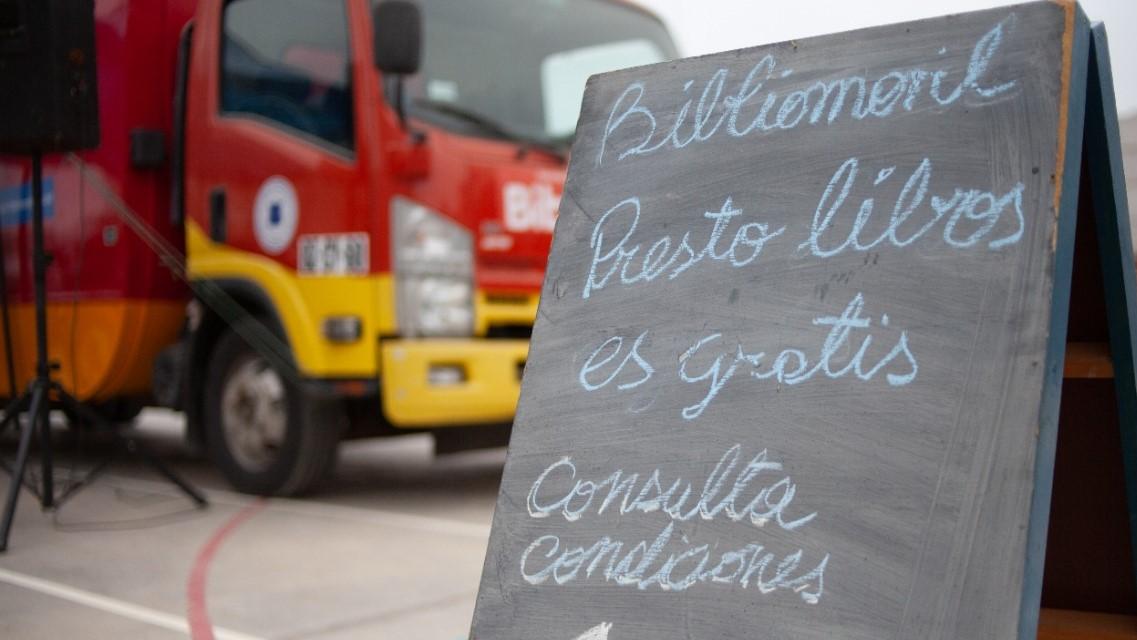 Bibliomovil
Presto libros
es gratis
Consulta
condiciones
Bib